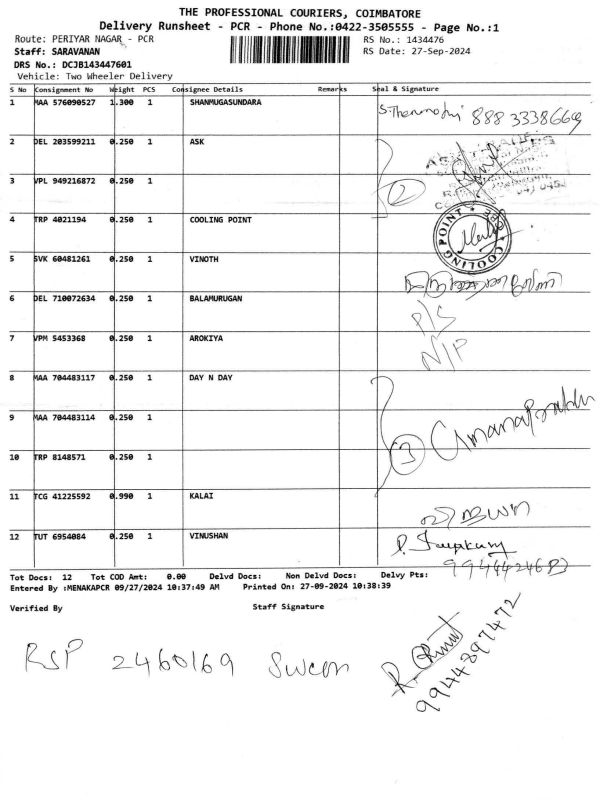 THE PROFESSIONAL COURIERS, COIMBATORE
Delivery Runsheet - PCR - Phone No.:0422-3505555 - Page No.:1
Route: PERIYAR NAGAR - PCR RS No.: 1434476
Staff: SARAVANAN RS Date: 27-Sep-2024
DRS No.: DCJB143447601
Vehicle: Two Wheeler Delivery
S No Consignment No Weight PCS Consignee Details Remarks Seal & Signature
1 MAA 576090527 1.300 1 SHANMUGASUNDARA 888 3338669
2 DEL 203599211 0.250 1 ASK
3 VPL 949216872 0.250 1 2
4 TRP 4021194 0.250 1 COOLING POINT COOLING POINT
5 SVK 60481261 0.250 1 VINOTH
6 DEL 710072634 0.250 1 BALAMURUGAN P/S
7 VPM 5453368 0.250 1 AROKIYA N/P
8 MAA 704483117 0.250 1 DAY N DAY
9 MAA 704483114 0.250 1
10 TRP 8148571 0.250 1 3
11 TCG 41225592 0.990 1 KALAI
12 TUT 6954084 0.250 1 VINUSHAN
Tot Docs: 12 Tot COD Amt: 0.00 Delvd Docs: Non Delvd Docs: Delvy Pts:
Entered By :MENAKAPCR 09/27/2024 10:37:49 AM Printed On: 27-09-2024 10:38:39
Verified By Staff Signature
RSP 2460169
9944897472